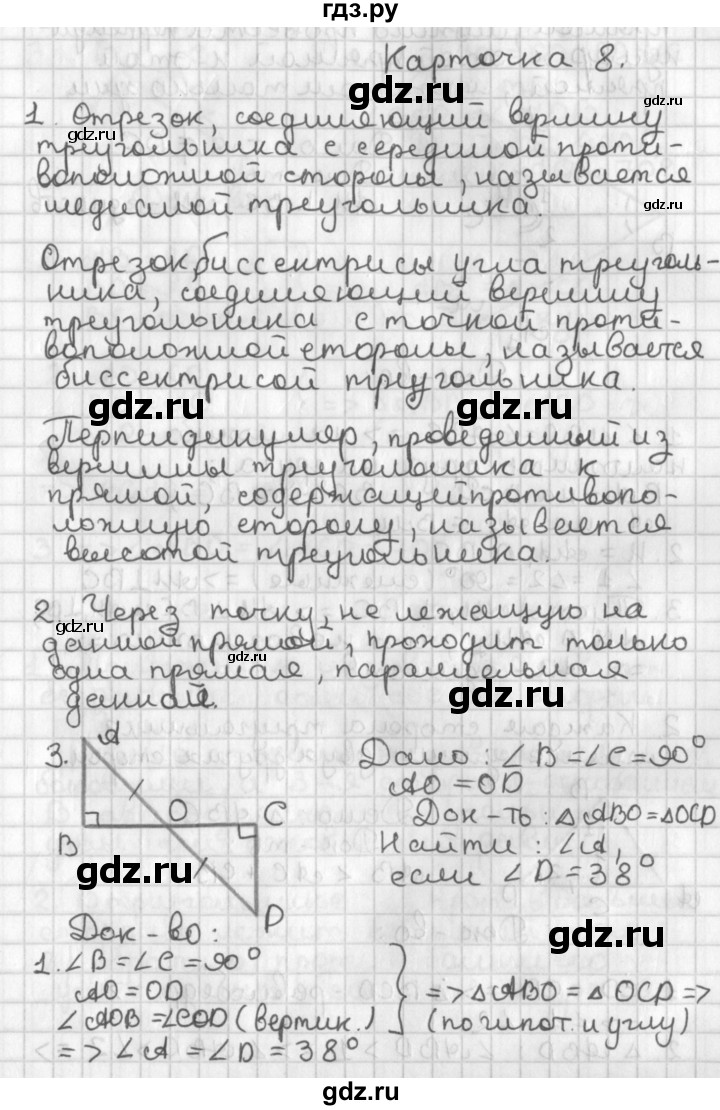 гдз.ру
Карточка 8.
1. Отрезок, соединяющий вершину
треугольника с серединой проти-
воположной стороны, называется
медианой треугольника.
Отрезок биссектрисы угла треуголь-
ника, соединяющий вершину
треугольника с точкой проти-
воположной стороны, называется
биссектрисой треугольника.
Перпендикуляр, проведенный из
вершины треугольника к
прямой, содержащей противопо-
ложную сторону, называется
высотой треугольника.
2. Через точку, не лежащую на
данной прямой, проходит только
одна прямая, параллельная
данной.
3. A O C B D
Дано: ∠B = ∠C = 90°
AO = OD
Док-ть: △ABO = △OCD
Найти: ∠A,
если ∠D = 38°
Док-во:
1. ∠B = ∠C = 90°
AO = OD
∠AOB = ∠COD (вертик.)
=> △ABO = △OCD =>
(по гипот. и углу)
=> ∠A = ∠D = 38°
gdz.ru
gdz.ru
gdz.ru
gdz.ru
gdz.ru
gdz.ru
gdz.ru
gdz.ru
gdz.ru
gdz.ru
gdz.ru
gdz.ru
gdz.ru
gdz.ru